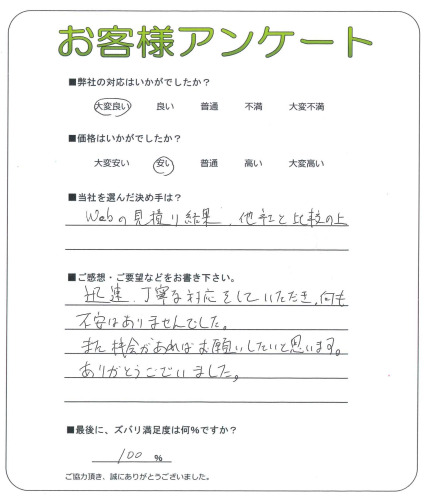 お客様アンケート
■弊社の対応はいかがでしたか？
大変良い 良い 普通 不満 大変不満
■価格はいかがでしたか？
大変安い 安い 普通 高い 大変高い
■当社を選んだ決め手は？
Webの見積り結果、他社と比較の上
■ご感想・ご要望などをお書き下さい。
迅速、丁寧な対応をしていただき、何も
不安はありませんでした。
また機会があればお願いしたいと思います。
ありがとうございました。
■最後に、ズバリ満足度は何％ですか？
100 ％
ご協力頂き、誠にありがとうございました。